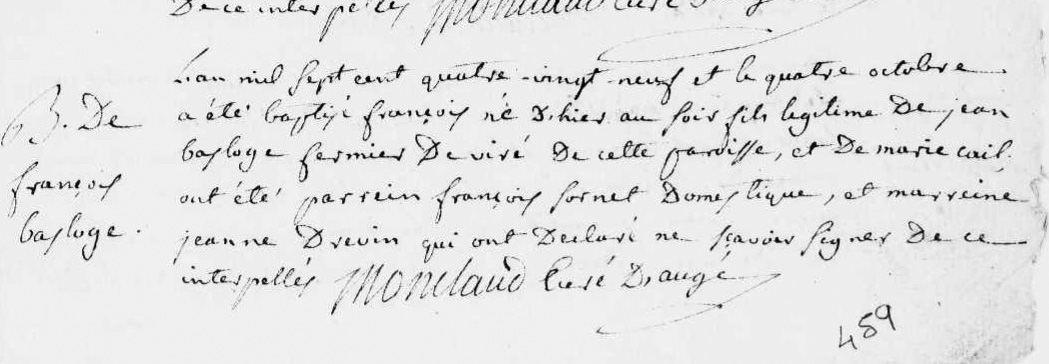 De ce interpellés Monclaud curé
L'an mil sept cent quatre-vingt-neuf et le quatre octobre
B. De
a été baptisé françois né d'hier au soir fils légitime De jean
basloge fermier De viré De cette paroisse, et De marie cail.
françois
ont été parrein françois sornet Domestique, et marreine
basloge.
jeanne Drevin qui ont Déclaré ne sçavoir signer De ce
interpellés Monclaud Curé D'augé
459